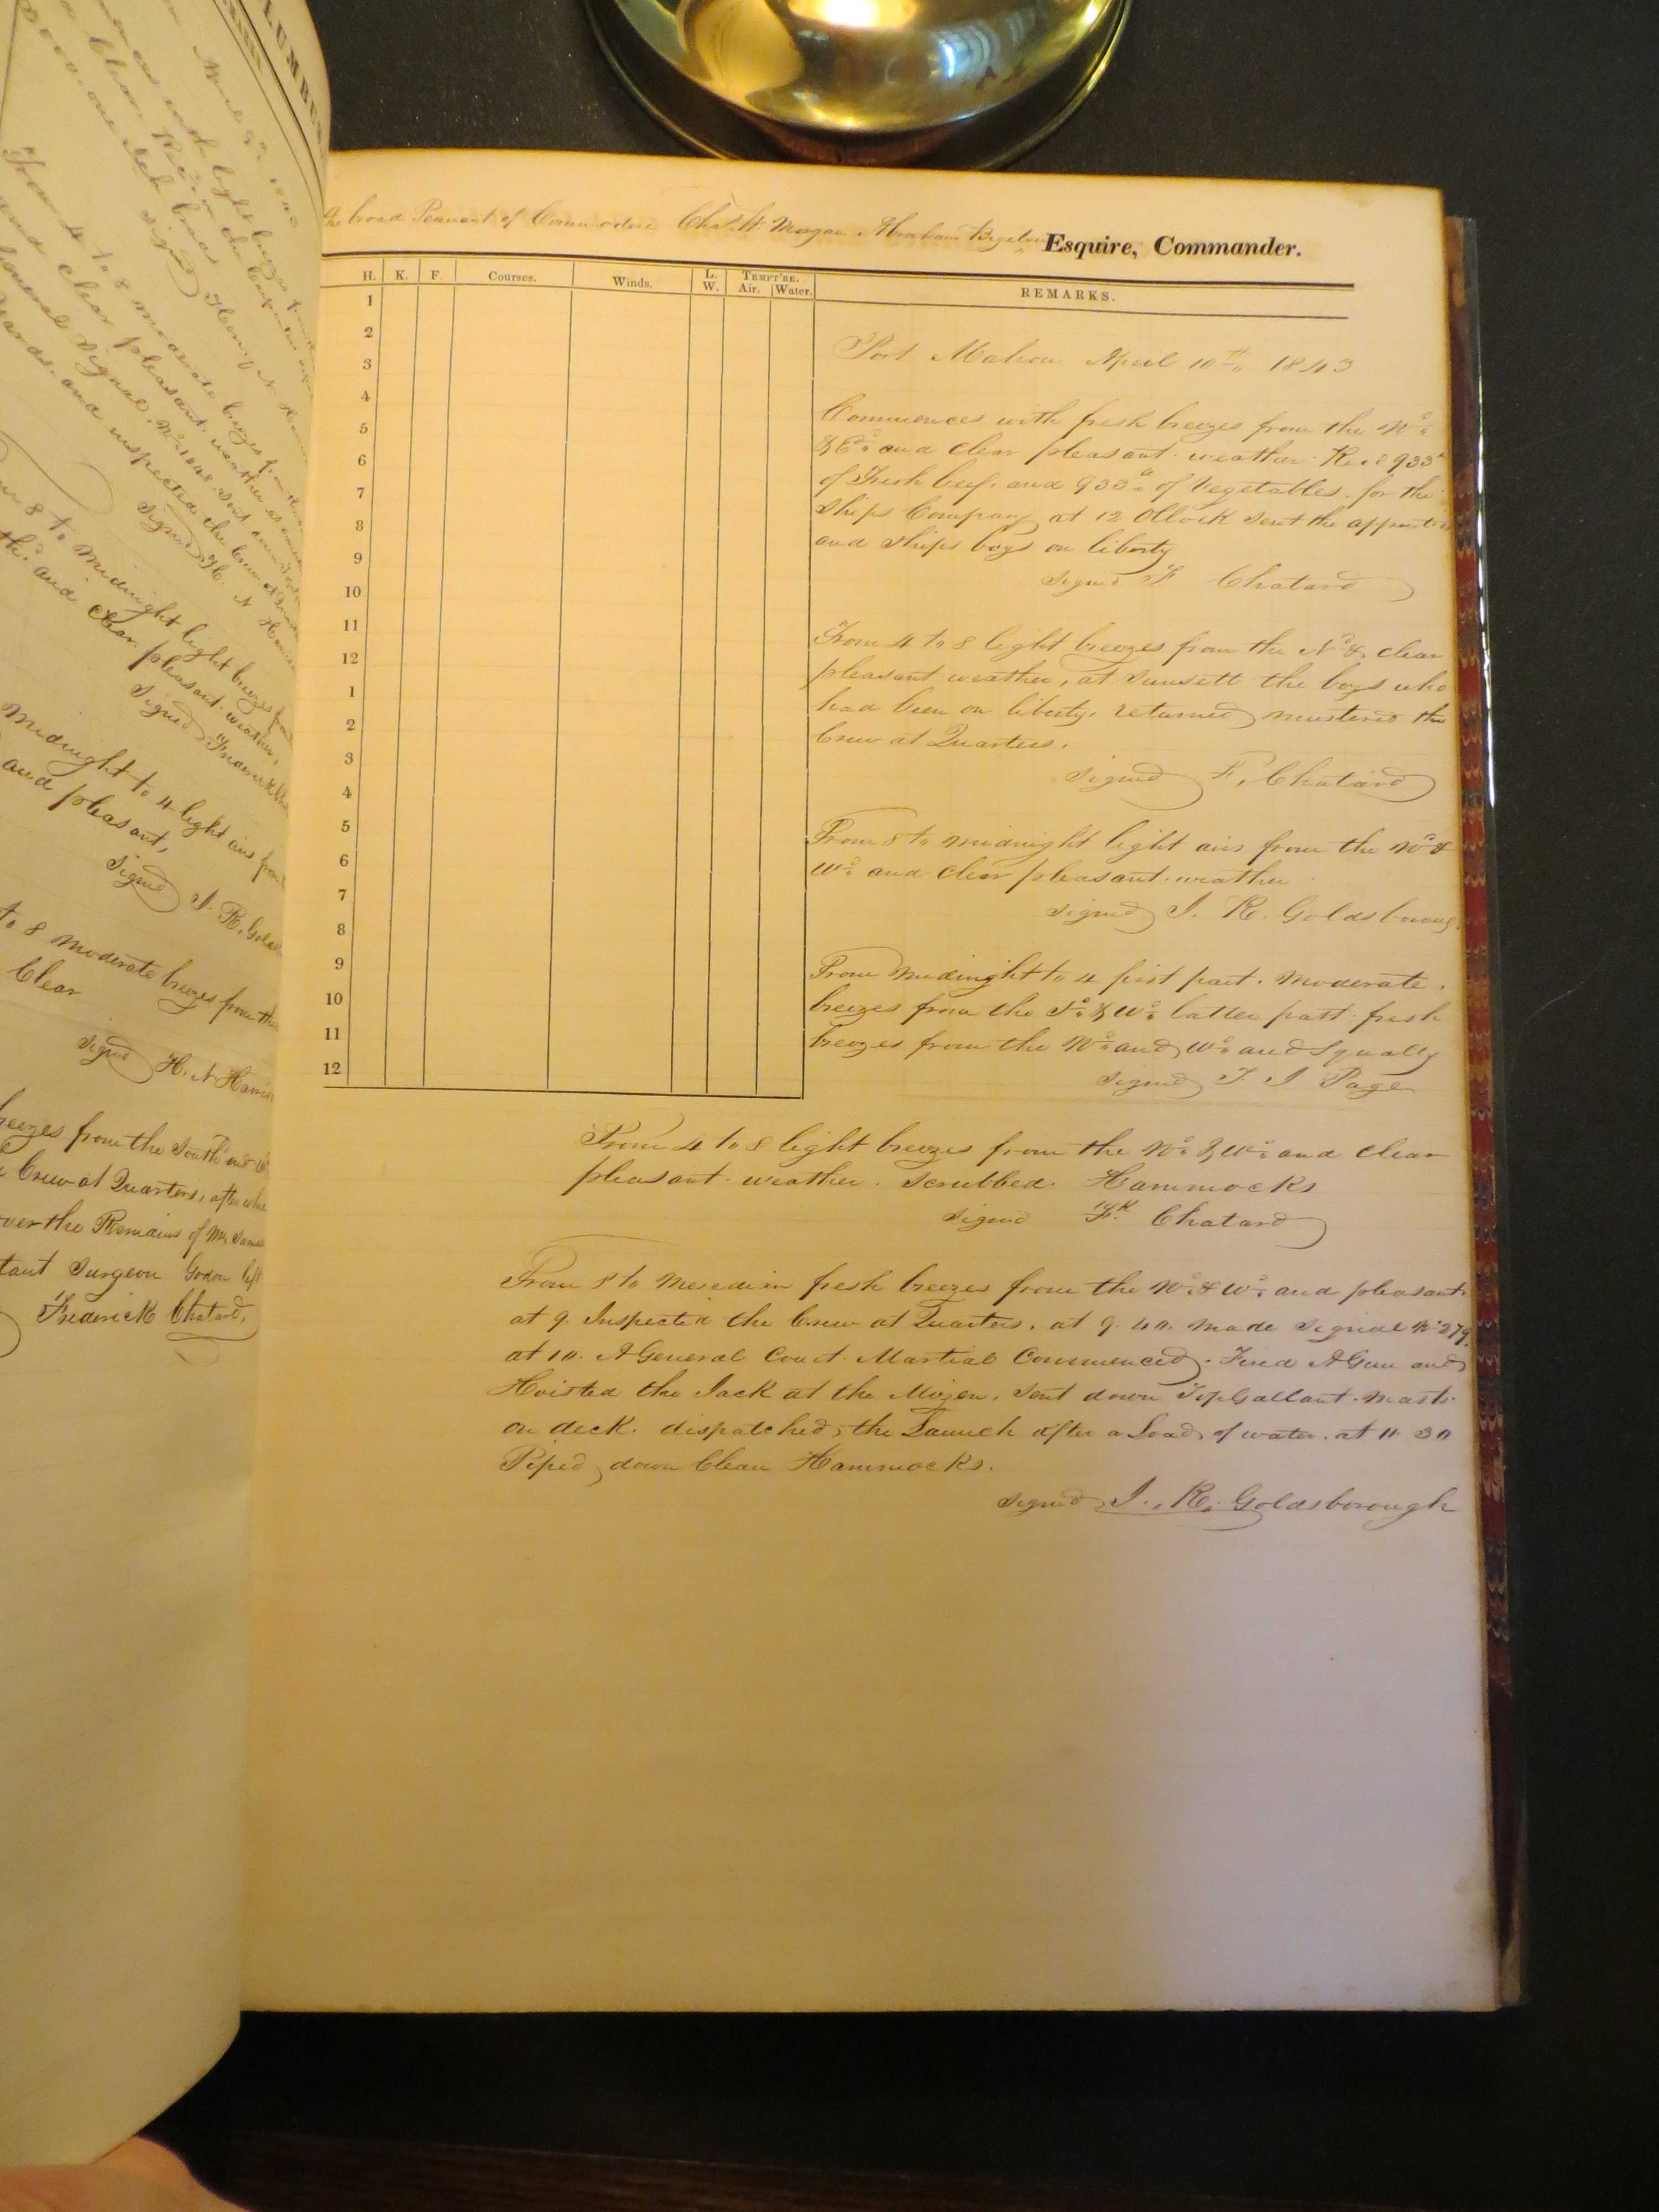 LUMB
and light breezes
From 4 to 8 moderate breezes from
and clear pleasant weather at
General Signal No 1048. Sent down
yards. and inspected the Crew at
Signed H. N. Harris
8 to Midnight light breezes from
and clear pleasant weather,
Signed Frederick
Midnight to 4 light airs from
and pleasant,
Signed J. R. Golds
to 8 moderate breezes from the
Clear
Signed H. N. Harris
breezes from the South and W
Crew at Quarters, after whi
over the Remains of Mr James
tant Surgeon Godon left
Frederick Chatard,
the broad Pennant of Commodore Chas. W. Morgan Abraham Bigelow Esquire, Commander.
H. K. F. Courses. Winds. L. W. TEMPT'RE. Air. Water. REMARKS.
1
2
3
4
5
6
7
8
9
10
11
12
1
2
3
4
5
6
7
8
9
10
11
12
Port Mahon April 10th 1843
Commences with fresh breezes from the Nd.
& Ed. and clear pleasant weather Recd 933 lb
of Fresh beef, and 933 lb of Vegetables. for the
Ships Company at 12 OClock Sent the
and Ships boys on liberty
Signed F Chatard
From 4 to 8 light breezes from the Nd & clear
pleasant weather, at Sunsett the boys who
had been on liberty, returned mustered the
Crew at Quarters.
Signed F, Chatard
From 8 to midnight light airs from the Nd &
Wd and clear pleasant weather
Signed J. R. Goldsboroug
From Midinght to 4 first part. Moderate.
breezes from the Sd & Wd latter part fresh
breezes from the Nd and Wd and Squally
Signed T. J Page
From 4 to 8 light breezes from the Nd & Wd and clear
pleasant weather. Scrubbed. Hammocks
Signed Fk Chatard
From 8 to Meredian fresh breezes from the Nd & Wd and pleasant
at 9. Inspected the Crew at Quarters. at 9. 40. made Signal No 279.
at 10. A General Court Martial Commenced. Fired A Gun and
Hoisted the Jack at the Mizen. Sent down TopGallant Masts
on deck. dispatched, the Launch after a Load of water. at 11 30
Piped down Clean Hammocks.
Signed J. R. Goldsborough